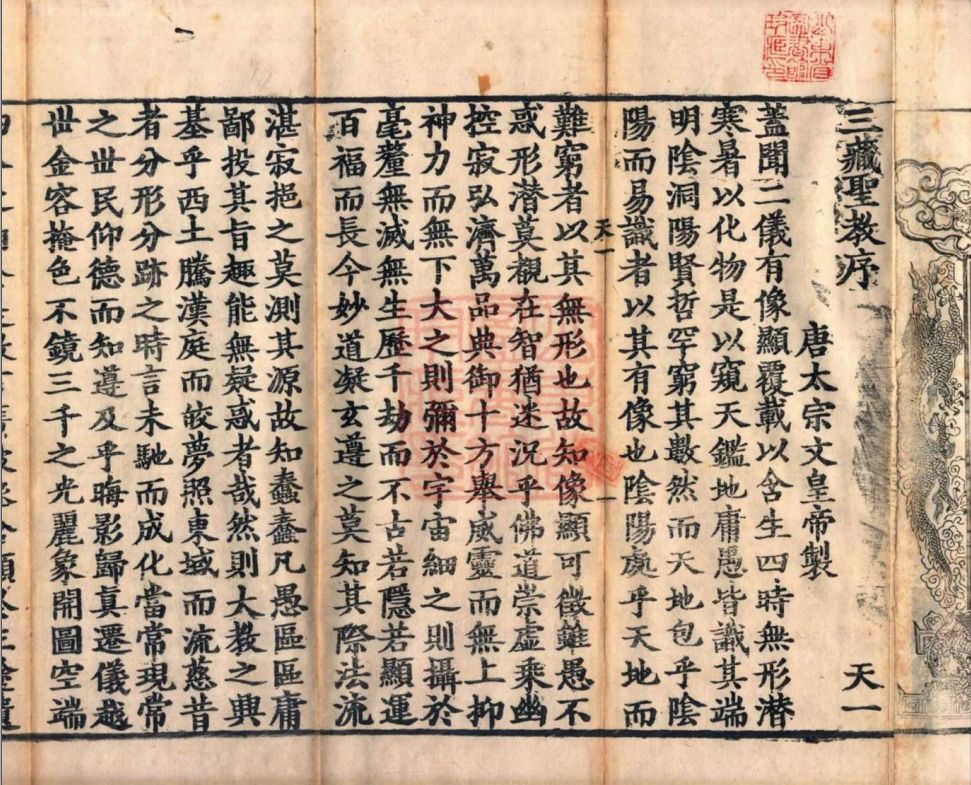 山東省圖書館珍藏印
三藏聖教序
天一
唐太宗文皇帝製
蓋聞二儀有像顯覆載以含生四時無形潛
寒暑以化物是以窺天鑑地庸愚皆識其端
明陰洞陽賢哲罕窮其數然而天地包乎陰
陽而易識者以其有像也陰陽處乎天地而
天一
一
難窮者以其無形也故知像顯可徵雖愚不
惑形潛莫覩在智猶迷況乎佛道崇虛乘幽
控寂弘濟萬品典御十方舉威靈而無上抑
神力而無下大之則彌於宇宙細之則攝於
毫釐無滅無生歷千劫而不古若隱若顯運
百福而長今妙道凝玄遵之莫知其際法流
湛寂挹之莫測其源故知蠢蠢凡愚區區庸
鄙投其旨趣能無疑惑者哉然則大教之興
基乎西土騰漢庭而皎夢照東域而流慈昔
者分形分跡之時言未馳而成化當常現常
之世民仰德而知遵及乎晦影歸真遷儀越
世金容掩色不鏡三千之光麗象開圖空端